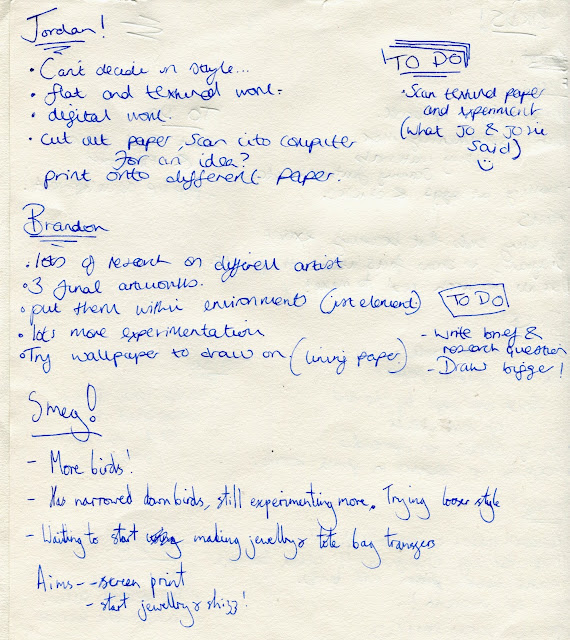 Jordan!
• Can't decide on style...
• flat and textured work.
• digital work.
• cut out paper, scan into computer
For an idea?
print onto different paper.
TO DO
• Scan textured paper
and experiment
(what JO & JOSIE
said)
Brandon
• lots of research on different artist
• 3 final artworks.
• put them within environments (inst element)
• lots more experimentation
• Try wallpaper to draw on (lining paper)
TO DO
- Write brief &
research question
- Draw bigger!
Smeg!
- More birds!
- Has narrowed down birds, still experimenting more. Trying looser style
- Waiting to start making jewellry & tote bag transfers
Aims - - screen print
- start jewellry & shizz!